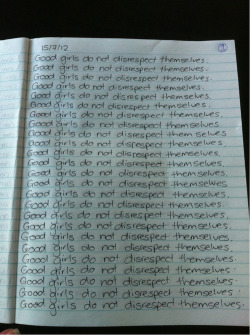 15/7/12
Good girls do not disrespect themselves.
Good girls do not disrespect themselves.
Good girls do not disrespect themselves.
Good girls do not disrespect themselves.
Good girls do not disrespect themselves.
Good girls do not disrespect themselves.
Good girls do not disrespect themselves.
Good girls do not disrespect themselves.
Good girls do not disrespect themselves.
Good girls do not disrespect themselves.
Good girls do not disrespect themselves.
Good girls do not disrespect themselves.
Good girls do not disrespect themselves.
Good girls do not disrespect themselves.
Good girls do not disrespect themselves.
Good girls do not disrespect themselves.
Good girls do not disrespect themselves.
Good girls do not disrespect themselves.
Good girls do not disrespect themselves.
Good girls do not disrespect themselves.
Good girls do not disrespect themselves.
Good girls do not disrespect themselves.
Good girls do not disrespect themselves.
Good girls do not disrespect themselves.